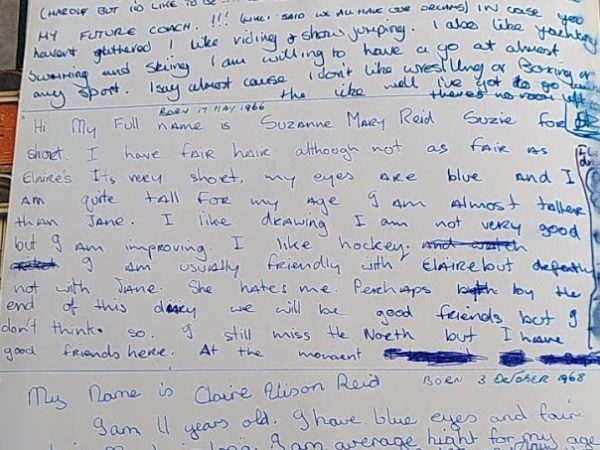 (HARDLE BUT I'D LIKE TO BE
MY FUTURE COACH. !!! (WHL! SAID WE ALL HAVE OUR DREAMS) IN CASE you
havent gathered I like riding & show jumping. I also like yachting
swimming and skiing I am willing to have a go at almost
any sport. I say almost cause I don't like wrestling or Boxing or
the like well I've got to go
there's no room left
BORN 17 MAY 1966
Hi My Full name is SUZANNE MARY REID SUZIE for
short. I have FAIR HAIR although not as FAIR AS
ElAIRE'S ITS very short, my eyes ARE blue AND I
AM quite tAll FOR my Age I AM Almost taller
than JANE. I like drawing I am not very good
but I AM improving. I like hockey. and watch
I AM usually friendly with ElAIRE but
not with JANE. She hates me. Perhaps by the
end of this diary we will be good friends but I
don't think so. I still miss the North but I have
good friends here. At the moment
My Name is Claire Alison Reid BORN 3 OCTOBER 1968
I am 11 years old. I have blue eyes and fair
I am average hight for my age